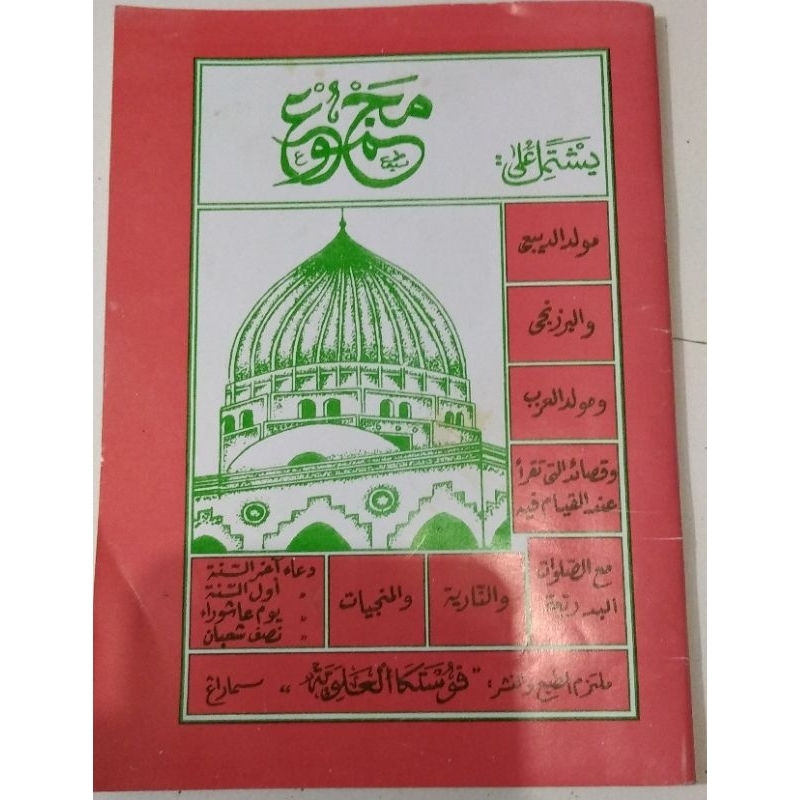 مجموع
يشتمل على:
مولد الديبعي
والبرزنجي
ومولد العزب
وقصائد التي تقرأ
عند القيام فيه
مع الصلوات
البدرية
والنارية
والمنجيات
دعاء آخر السنة
" أول السنة
" يوم عاشوراء
" نصف شعبان
ملتزم الطبع والنشر: "فوستكا العلوية" سماراغ